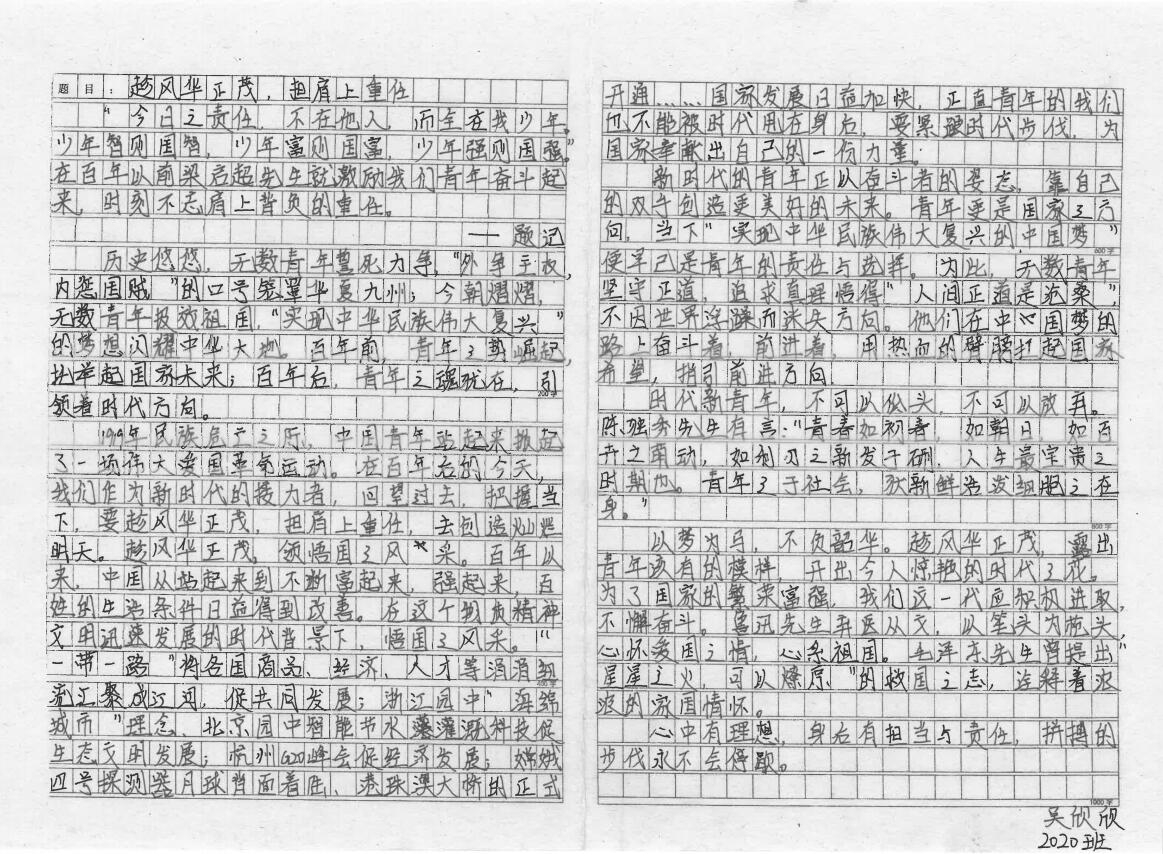 题目：趁风华正茂，担肩上重任
"今日之责任，不在他人，而全在我少年。
少年智则国智，少年富则国富，少年强则国强。"
在百年以前梁启超先生就激励我们青年奋斗起
来，时刻不忘肩上背负的重任。
——题记
历史悠悠，无数青年誓死力争，"外争主权，
内惩国贼"的口号笼罩华夏九州；今朝熠熠，
无数青年报效祖国，"实现中华民族伟大复兴"
的梦想闪耀中华大地。百年前，青年之势崛起，
扯举起国家未来；百年后，青年之魂犹在，引
200字
领着时代方向。
1919年民族危亡之际，中国青年站起来掀起
了一场伟大爱国革命运动。在百年后的今天，
我们作为新时代的接力者，回望过去，把握当
下，要趁风华正茂，担肩上重任，去创造灿烂
明天。趁风华正茂，领悟国之风采。百年以
来，中国从站起来到不断富起来，强起来，百
姓的生活条件日益得到改善。在这个物质精神
文明迅速发展的时代背景下，悟国之风采。"
一带一路"将各国商品、经济、人才等涓涓细
400字
流汇聚成江河，促共同发展；浙江园中"海绵
城市"理念、北京园中智能节水灌溉科技促
生态文明发展；杭州G20峰会促经济发展；嫦娥
四号探测器月球背面着陆、港珠澳大桥的正式
开通……国家发展日益加快，正直青年的我们
也不能被时代甩在身后，要紧跟时代步伐，为
国家奉献出自己的一份力量。
新时代的青年正以奋斗者的姿态，靠自己
的双手创造更美好的未来。青年更是国家之方
向，当下"实现中华民族伟大复兴的中国梦"
600字
使早已是青年的责任与选择。为此，无数青年
坚守正道，追求真理悟得"人间正道是沧桑"，
不因世界浮躁而迷失方向。他们在中国梦的
路上奋斗着，前进着，用热血的臂膀扛起国家
希望，指引前进方向．
时代新青年，不可以低头，不可以放弃。
陈独秀先生有言："青春如初春，如朝日，如百
卉之萌动，如利刃之新发于硎，人生最宝贵之
时期也。青年之于社会，犹新鲜活发细胞之在
身。"
800字
以梦为马，不负韶华。趁风华正茂，露出
青年该有的模样，开出令人惊艳的时代之花。
为了国家的繁荣富强，我们这一代应积极进取，
不懈奋斗。鲁迅先生弃医从文，以笔头为枪头，
心怀爱国之情，心系祖国。毛泽东先生曾提出"
星星之火，可以燎原"的救国之志，诠释着浓
浓的家国情怀。
心中有理想，身后有担当与责任，拼搏的
步伐永不会停歇。
1000字
吴欣欣
2020班